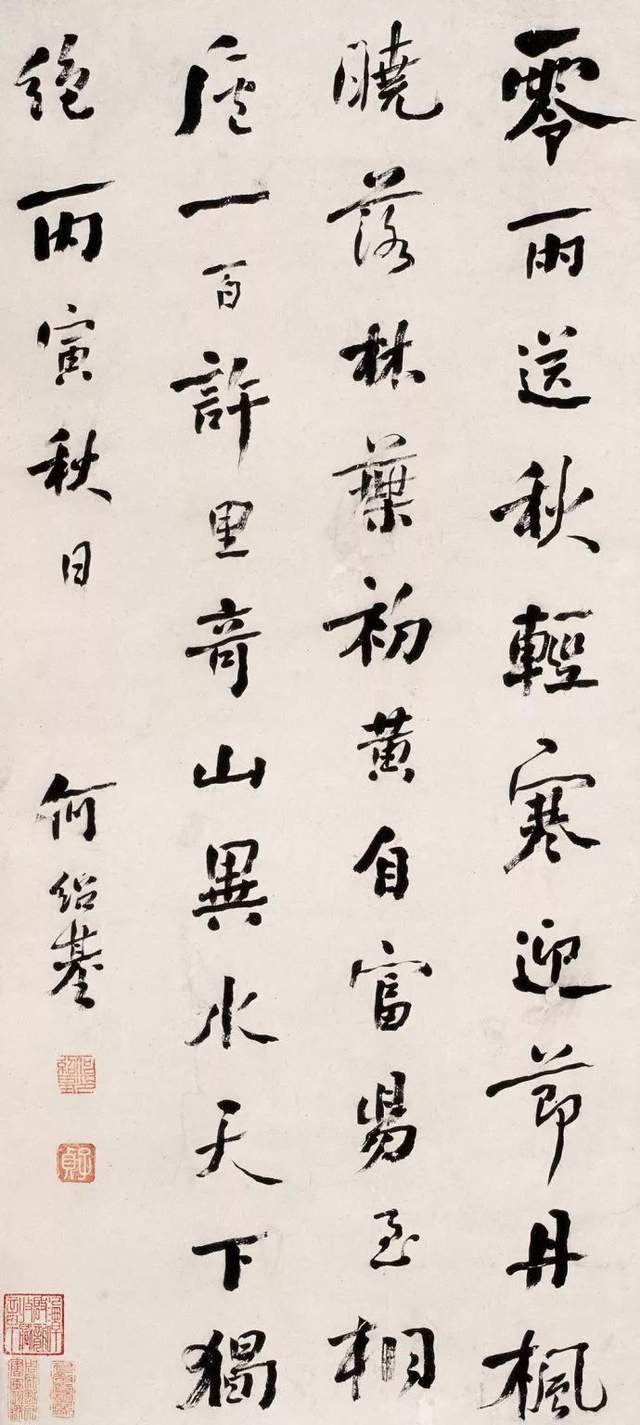 零雨送秋輕寒迎節丹楓
曉落林葉初黃自富昜至桐
廬一百許里奇山異水天下獨
絶丙寅秋日
何紹基
何紹基印
子貞